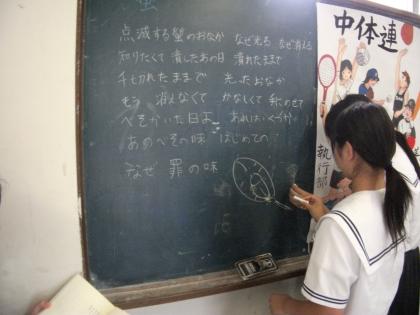 蛍
点滅する蛍のおなか なぜ光る なぜ消える
知りたくて 潰したあの日 潰れたままで
千切れたままで 光ったおなか
もう 消えなくて かなしくて 手にのせて
べそかいた日よ あれはいくつか
あのべその味 はじめての
なぜ 罪の味
中体連
執行部